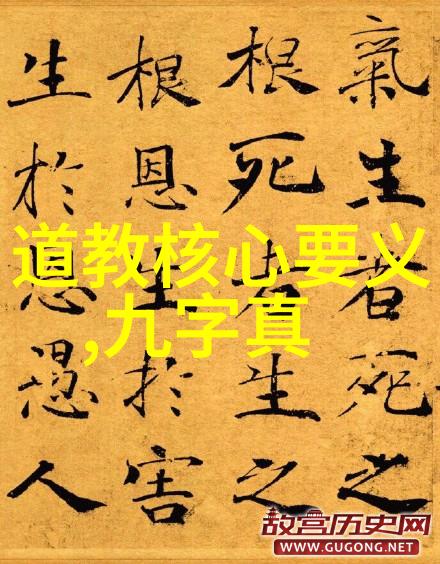 氣生者死之
根死者生之
根恩生於害
生於恩愚人
道教核心要义
,九字真
故宫历史网
WWW.GUGONG.NET